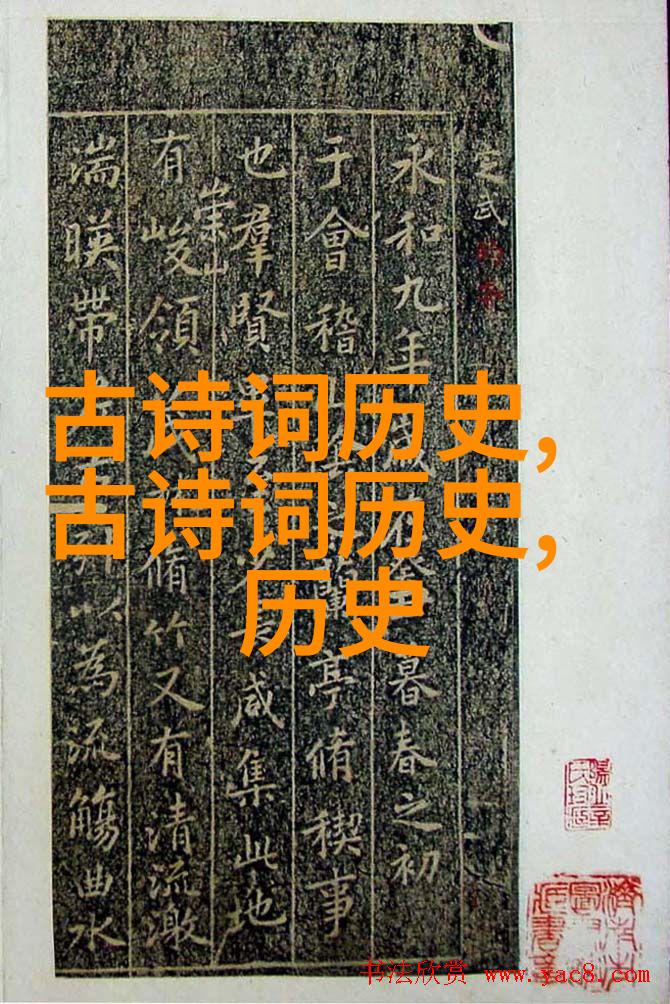 古诗词历史,
古诗词历史,
历史
定武
永和九年歲暮春之初
于會稽蘭亭脩稧事
也羣賢咸集此地
有崇山峻領茂脩竹又有清流激
湍暎帶以為流觴曲水
书法欣赏 www.yac8.com